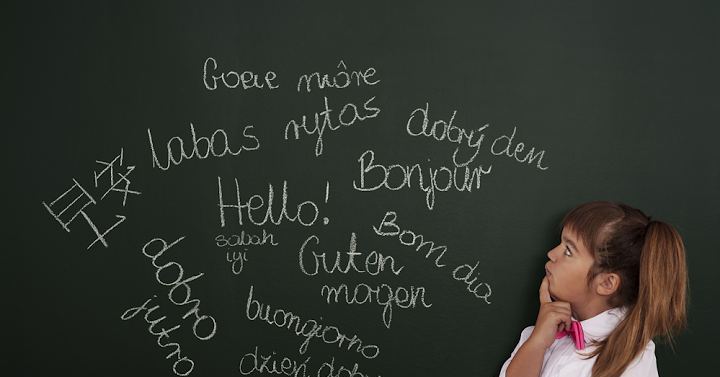 Goeie môre
labas rytas
dobrý den
Bonjour
Hello!
sabah
iyi
Bom dia
Guten
morgen
dobro
jutro
buongiorno
dzień dobry